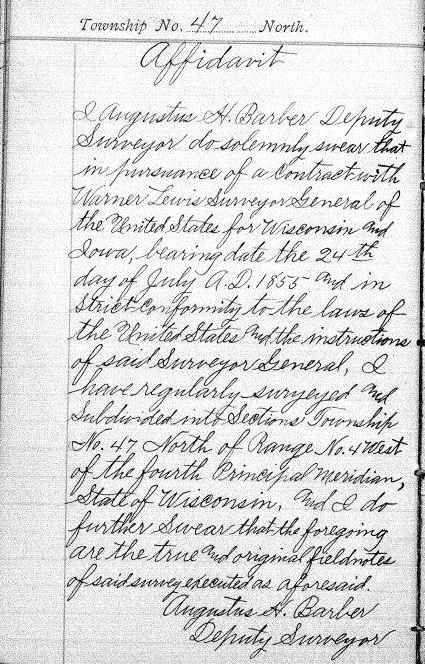 Township No. 47 North.
Affidavit
I Augustus H. Barber Deputy
Surveyor do solemnly swear that
in pursuance of a contract with
Warner Lewis Surveyor General of
the United States for Wisconsin and
Iowa, bearing date the 24th
day of July A.D. 1855 and in
strict conformity to the laws of
the United States and the instructions
of said Surveyor General, I
have regularly surveyed and
subdivided into Sections Township
No. 47 North of Range No. 4 West
of the fourth Principal Meridian,
State of Wisconsin, and I do
further swear that the foregoing
are the true and original fieldnotes
of said survey executed as aforesaid.
Augustus H. Barber
Deputy Surveyor